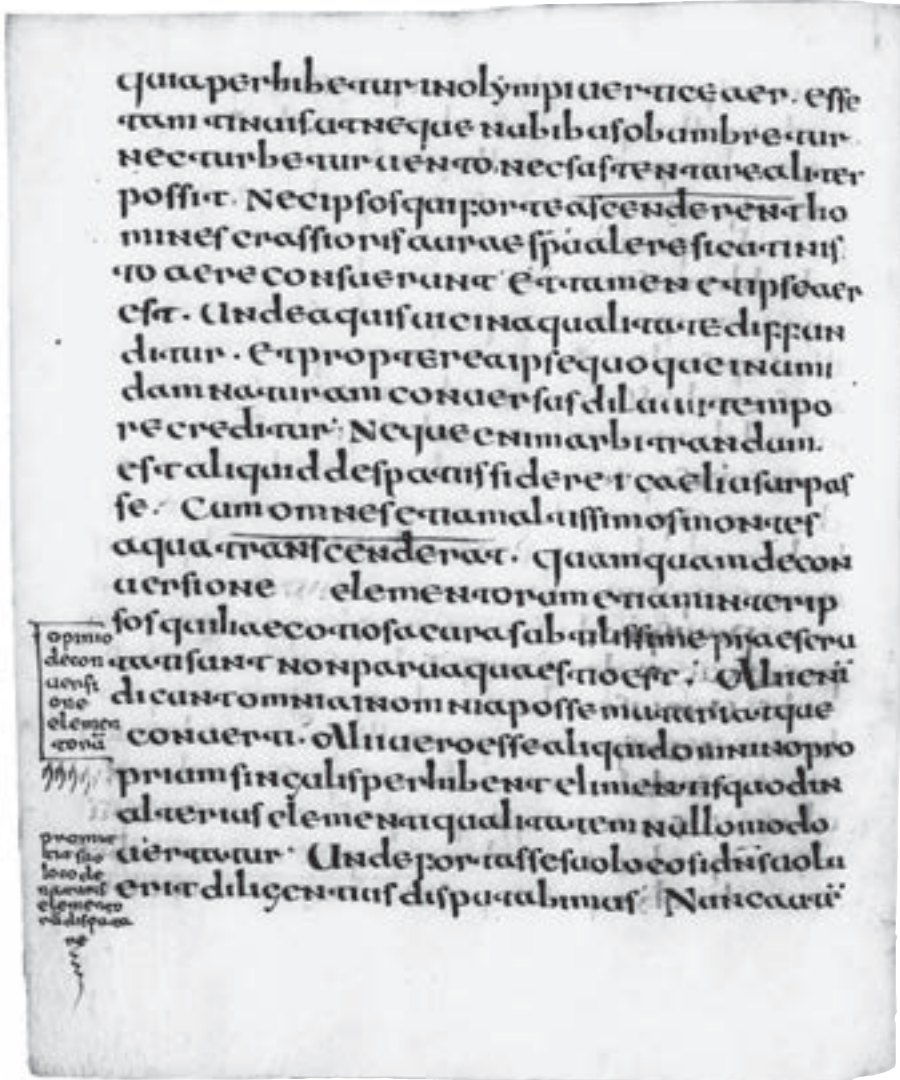 quia perhibetur in olýmpi uertice aer. esse
tam tinuis ut neque nubibus obumbretur
nec turbetur uento. nec sustentare aliter
possit. Nec ipsos qui forte ascenderent ho
mines crassioris aurae sp̄u alere sicut inis
to aere consuerunt Et tamen et ipse aer
est. Unde aquis uicina qualitate diffun
ditur. Et propterea ipse quoque in umi
dam naturam conuersus diluuii tempo
re creditur; Neque enim arbitrandum.
est aliquid de spatiis sidere i caeli usurpas
se. Cum omnes etiam altissimos montes
aqua transcenderat. Quamquam de con
uersione elementorum etiam inter ip
sos qui haec otiosa cura subtilissime praescru
tati sunt non parua quaestio est. Alii eni
dicunt omnia in omnia posse mutari atque
conuerti. Alii uero esse aliquid omnino pro
prium singulis perhibent elimentis quod in
alterius elementi qualitatem nullo modo
uertatur Unde fortasse suo loco si dn̄s uolu
erit diligentius disputabimus Nunc aut̄
opinio
decon
uersi
one
elemen
torū
promit
tit suo
loco de
naturis
elemento
rū disputa
re